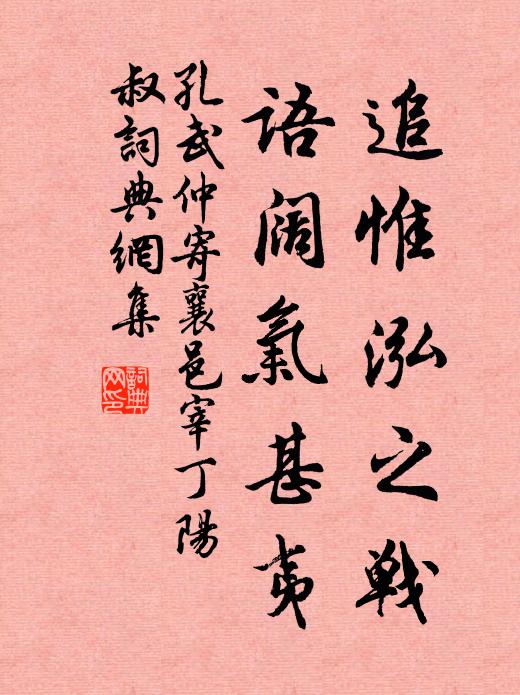 追惟泓之戰
語阔氣甚夷
孔武仲寄襄邑宰丁陽
叔詞典網集
詞典
网印